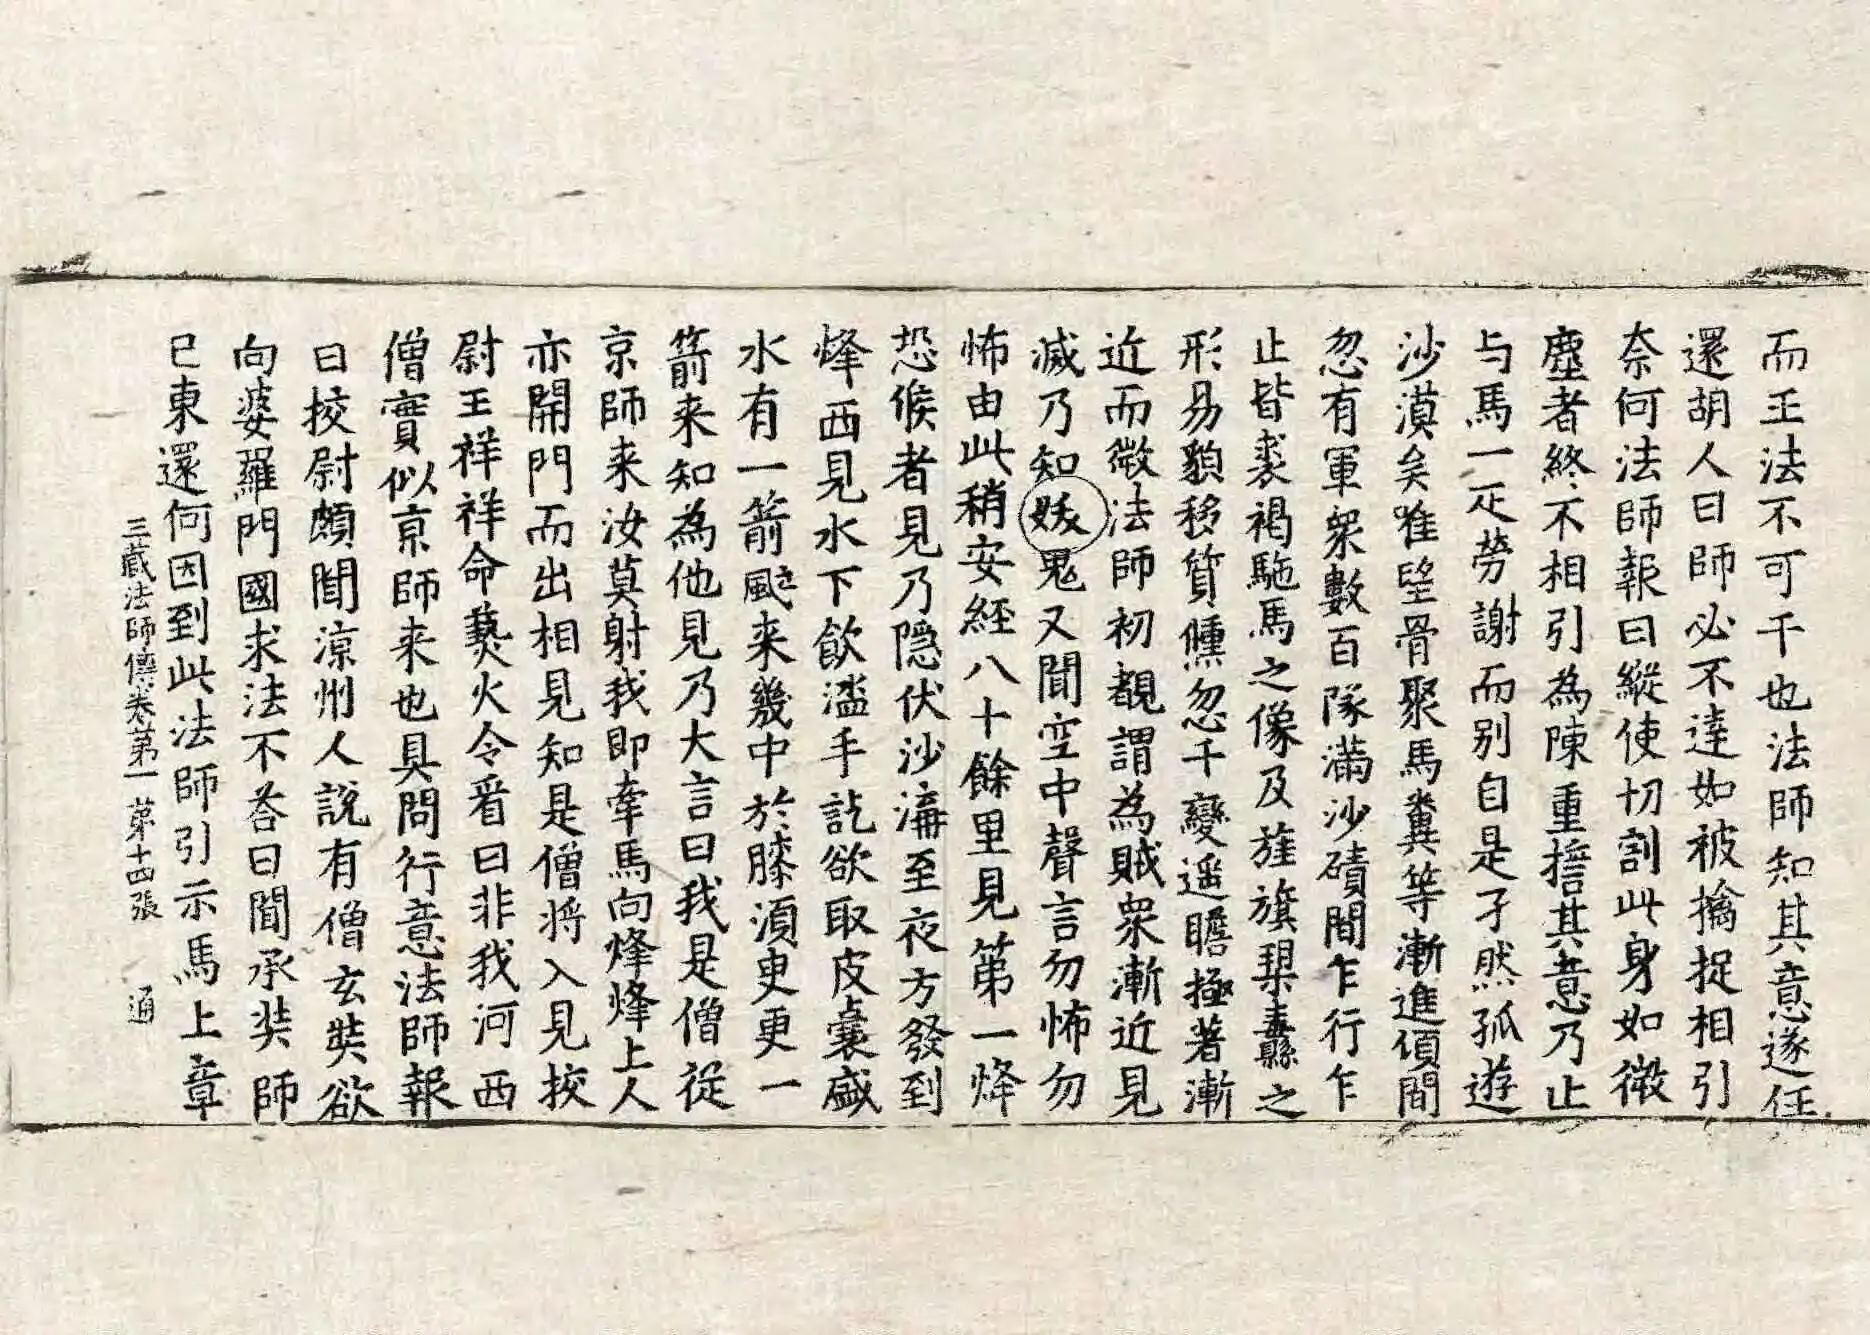 而王法不可干也法師知其意遂任
還胡人曰師必不達如被擒捉相引
奈何法師報曰縱使切割此身如微
塵者終不相引為陳重擔其意乃止
与馬一疋勞謝而别自是孑然孤遊
沙漠矣唯望骨聚馬糞等漸進頃間
忽有軍衆數百隊滿沙磧間乍行乍
止皆裘褐駞馬之像及旌旗槊纛之
形易貌移質倏忽千變遥瞻極著漸
近而微法師初覩謂為賊衆漸近見
滅乃知妖鬼又聞空中聲言勿怖勿
怖由此稍安經八十餘里見第一烽
恐候者見乃隠伏沙溝至夜方發到
烽西見水下飲盥手訖欲取皮囊盛
水有一箭颯来幾中於膝湏更更一
箭来知為他見乃大言曰我是僧從
京師来汝莫射我即牽馬向烽烽上人
亦開門而出相見知是僧將入見挍
尉王祥祥命爇火令看曰非我河西
僧實似京師来也具問行意法師報
曰挍尉頗聞涼州人說有僧玄奘欲
向婆羅門國求法不荅曰聞承奘師
已東還何因到此法師引示馬上章
三藏法師傳卷第一 第十四張 通